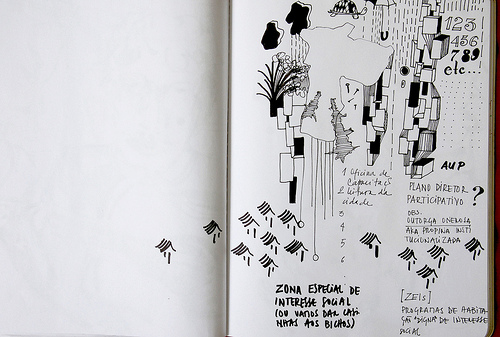 123
456
789
etc...
AUP
1 Oficina de
Capacitação
2 leitura da
cidade
3
4
5
6
PLANO DIRETOR
PARTICIPATIVO ?
OBS:
OUTORGA ONEROSA
AKA PROPINA INSTI
TUCIONALIZADA
ZONA ESPECIAL DE
INTERESSE SOCIAL
(OU VAMOS DAR CASI
NHAS AOS BICHOS)
[ZEIS]
PROGRAMAS DE HABITA
ÇÃO "DIGNA" DE INTERESSE
SOCIAL